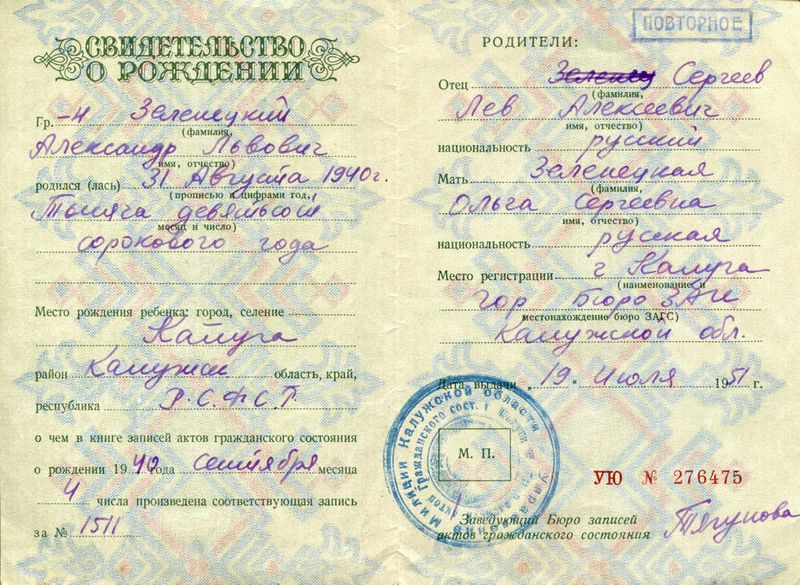 СВИДЕТЕЛЬСТВО
О РОЖДЕНИИ
Гр.-н Зеленецкий
(фамилия,
Александр Львович
имя, отчество)
родился (лась) 31 Августа 1940 г.
(прописью и цифрами год,
Тысяча девятьсот
месяц и число)
сорокового года
Место рождения ребенка: город, селение
Калуга
район Калужск область, край,
республика Р.С.Ф.С.Р.
о чем в книге записей актов гражданского состояния
о рождении 1940 года сентября месяца
4 числа произведена соответствующая запись
за № 1511
ПОВТОРНОЕ
РОДИТЕЛИ:
Отец Зеленец Сергеев
(фамилия,
Лев Алексеевич
имя, отчество)
национальность русский
Мать Зеленецкая
(фамилия,
Ольга Сергеевна
имя, отчество)
национальность русская
Место регистрации г Калуга
(наименование и
гор Бюро ЗАГС
местонахождение бюро ЗАГС)
Калужской обл.
Дата выдачи „19" Июля 1951 г.
Милиции Калужской области Управление
М. П.
УЮ № 276475
Заведующий Бюро записей
актов гражданского состояния Тягунова